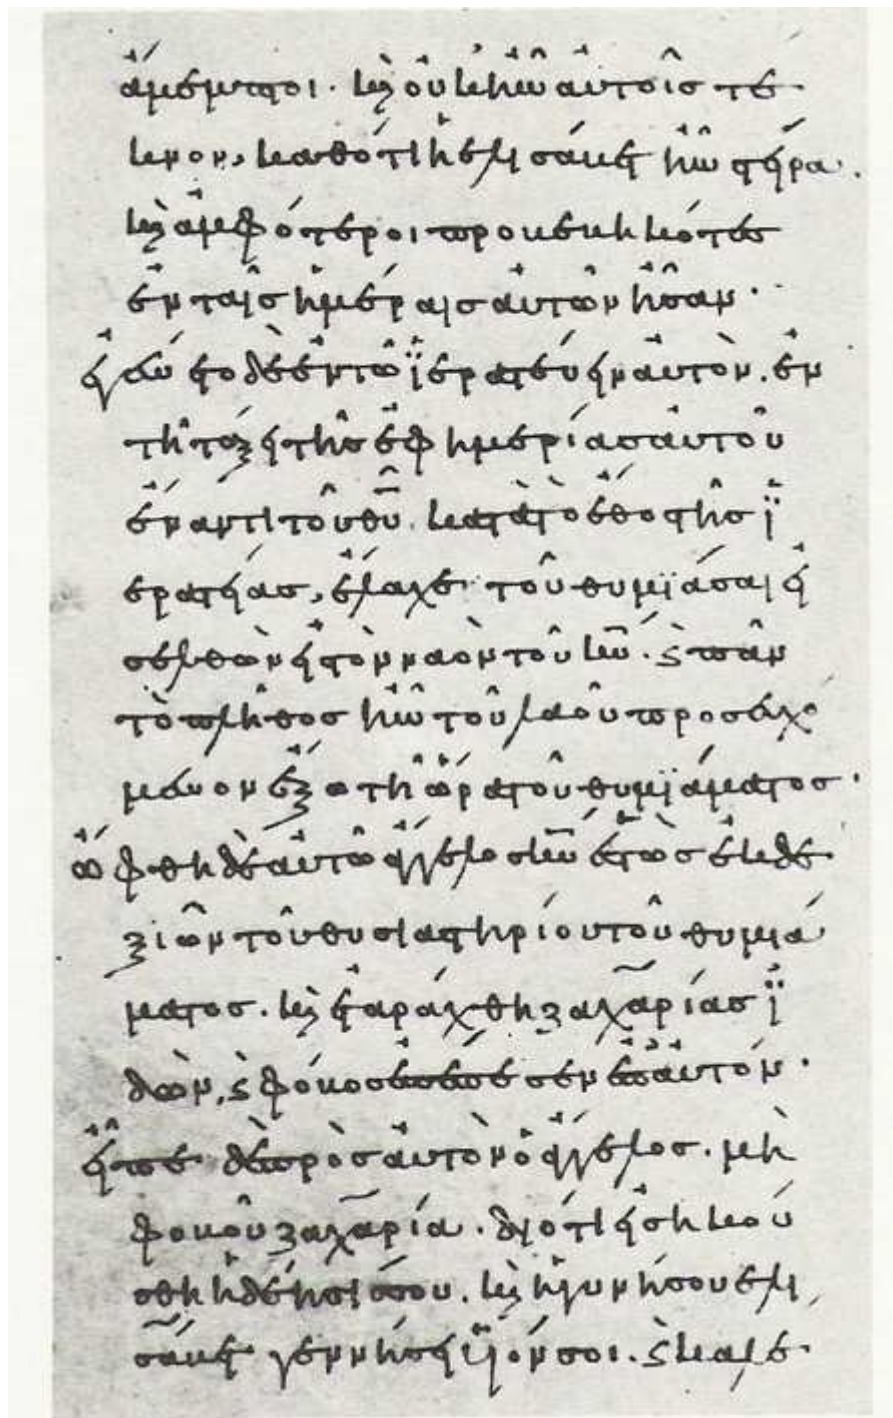 ἄμεμπτοι. κ(αὶ) οὐκ ἦν αὐτοῖς τέ
κνον, καθότι ἡ ἐλισάβετ ἦν στεῖρα.
κ(αὶ) ἀμφότεροι προβεβηκότες
ἐν ταῖς ἡμέραις αὐτῶν ἦσαν.
ἐγένετο δὲ ἐν τῷ ϊερατεύειν αὐτὸν. ἐν
τῆ τάξει τῆς ἐφημερίας αὐτοῦ
ἔναντι τοῦ θῦ. κατὰ τὸ ἔθος τῆς ϊ
ερατείας, ἔλαχε τοῦ θυμϊάσαι εἰ
σελθὼν εἰς τὸν ναὸν τοῦ κῦ. ϛ πᾶν
τὸ πλῆθος ἦν τοῦ λαοῦ προσευχό
μενον ἔξω τῆ ὥρα τοῦ θυμϊάματος.
ὤφθη δὲ αὐτῶ ἄγγελος κῦ ἑστὼς ἐκ δε
ξιῶν τοῦ θυσιαστηρίου τοῦ θυμιά
ματος. κ(αὶ) ἐταράχθη ζαχαρίας ϊ
δὼν, ϛ φόβος ἐπέπεσεν ἐπ αὐτόν.
εἶπε δὲ πρὸς αὐτὸν ὁ ἄγγελος. μὴ
φοβοῦ ζαχαρία. διότι εἰσηκού
σθη ἡ δέησίς σου. κ(αὶ) ἡ γυνή σου ἐλι
σάβετ γεννήσει ϋἱόν σοι. ϛ καλέ